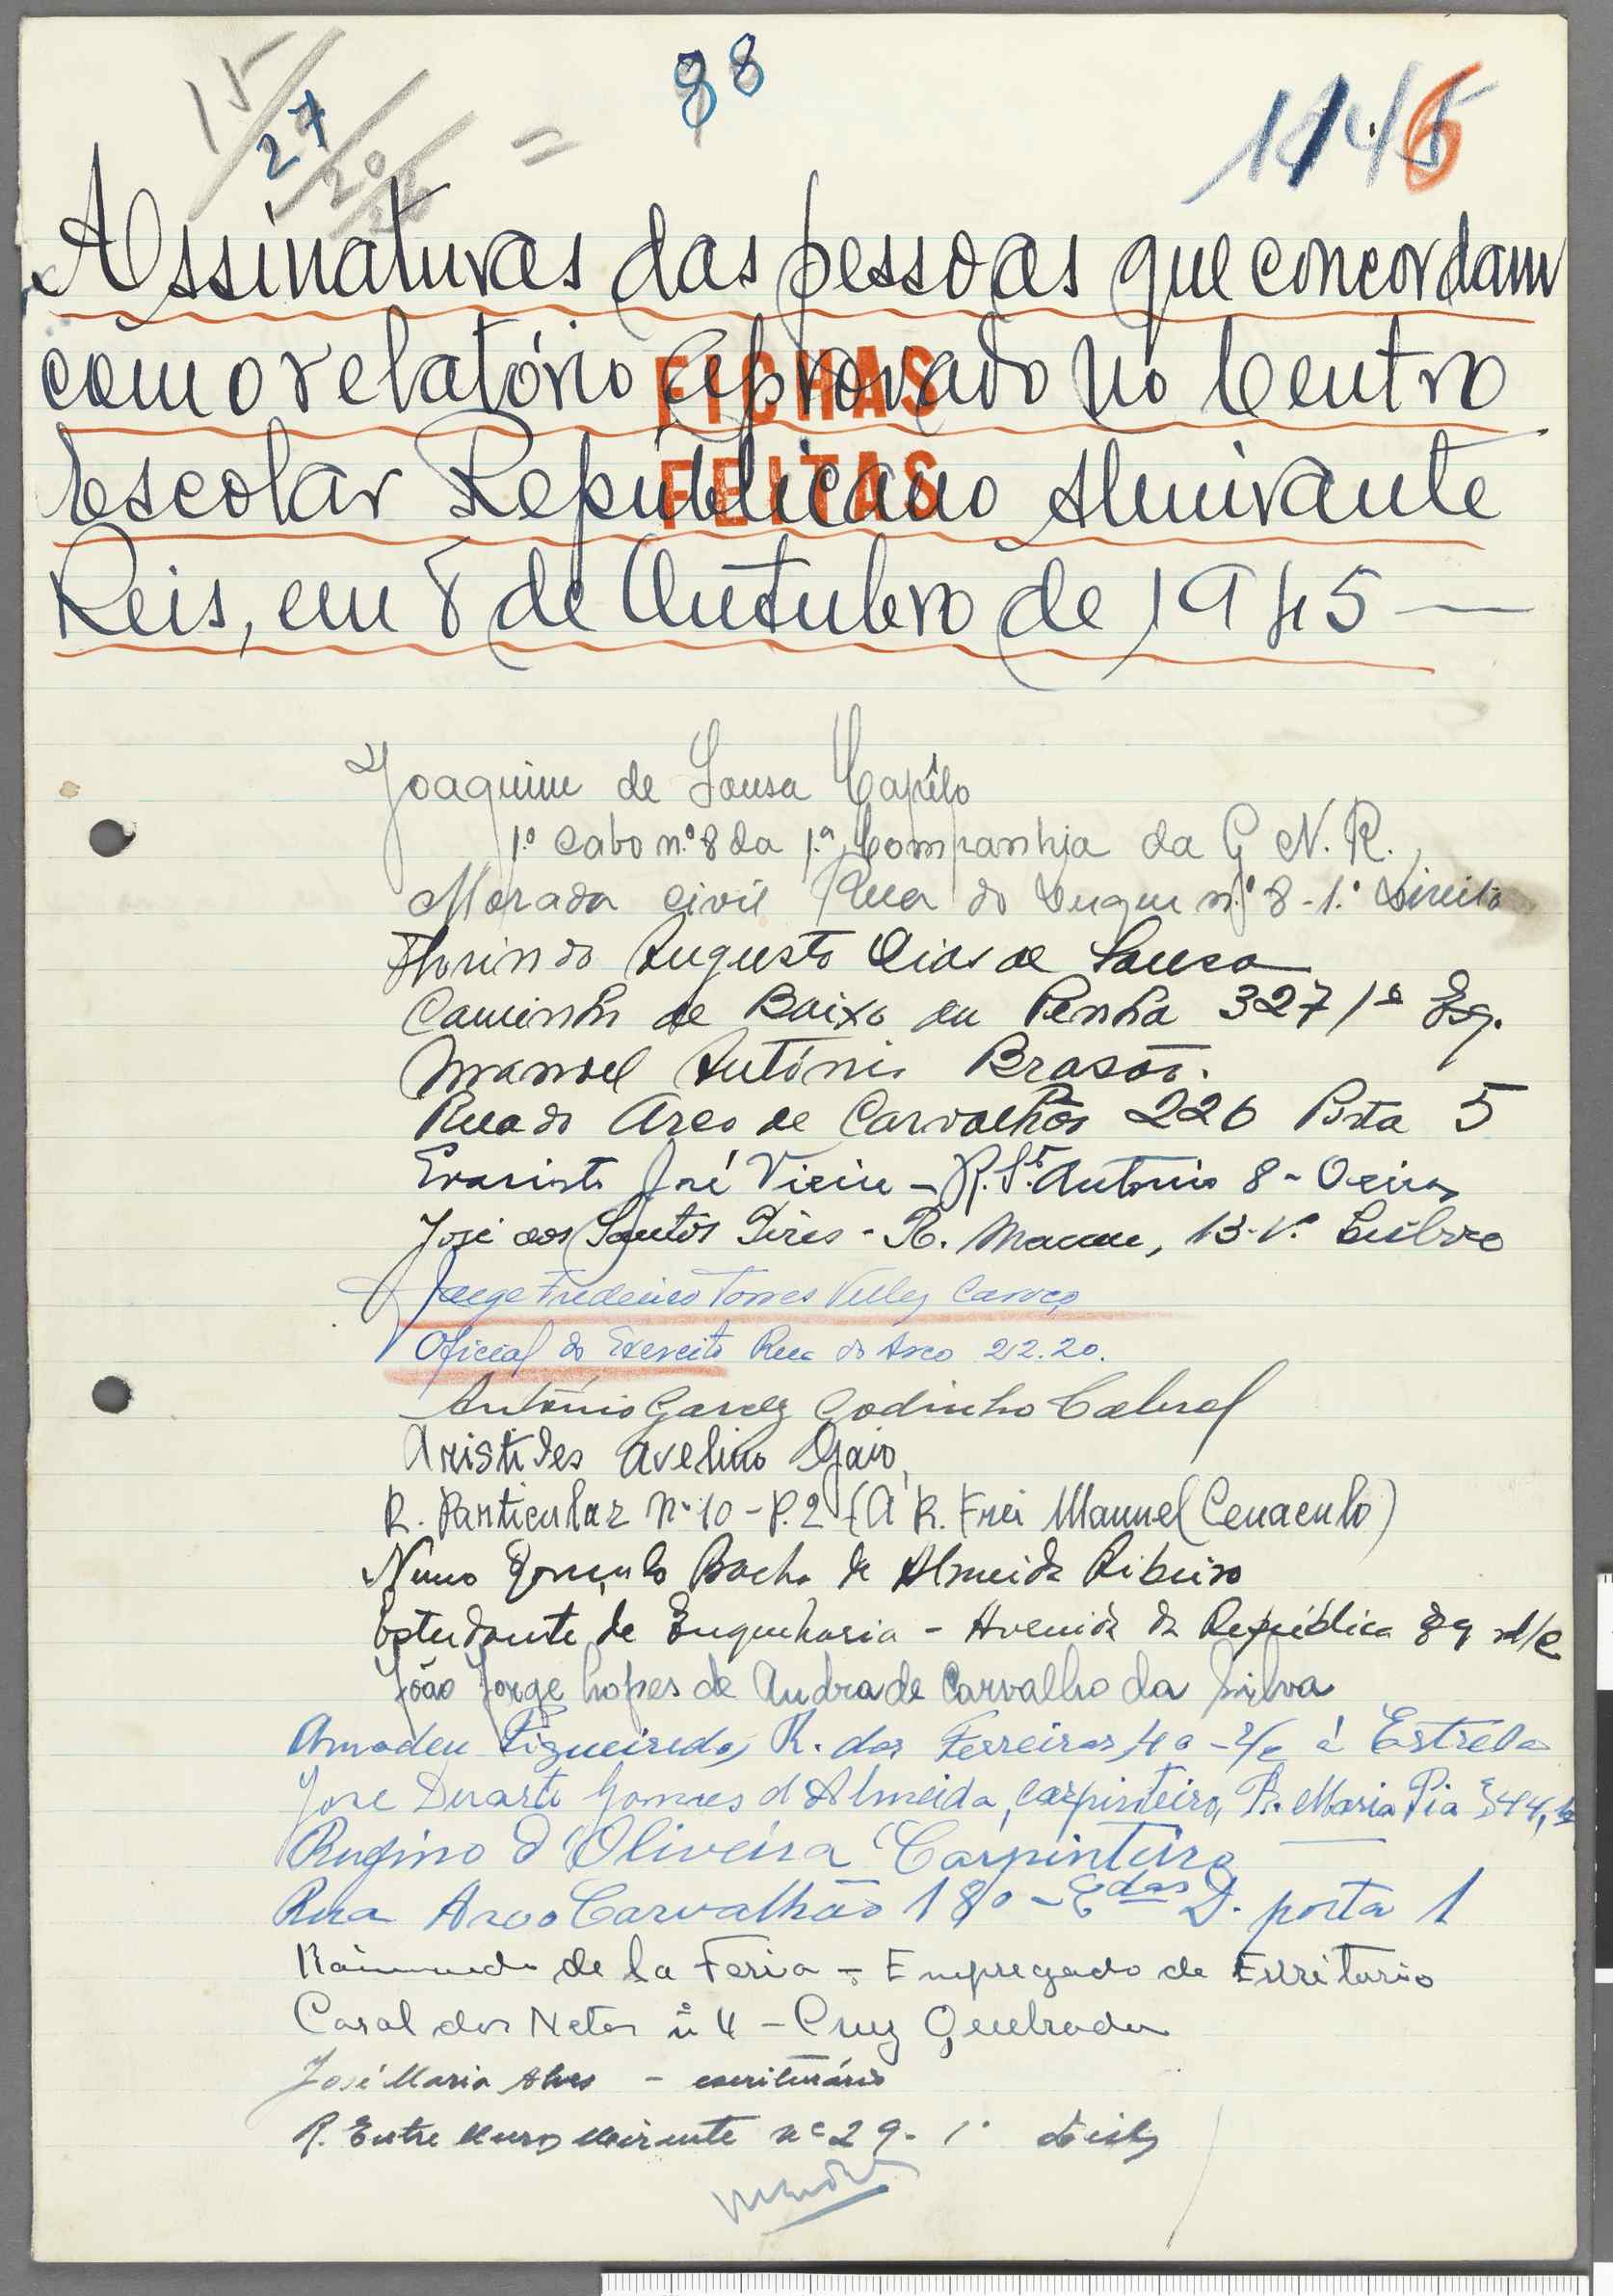 15
27
20
22
=
88
1145
6
Assinaturas das pessoas que concordam
com o relatório aprovado no Centro
FICHAS
Escolar Republicano Almirante
FEITAS
Reis, em 8 de Outubro de 1945 —
Joaquim de Sousa Capêlo
1.º Cabo n.º 8 da 1.ª Companhia da G. N. R.,
Morada civil Rua do Duque n.º 8 - 1.º Direito
Florindo Augusto Dias de Sousa
Caminho de Baixo da Penha 327 1º Esq.
Manoel António Brasão.
Rua do Arco de Carvalhão 226 Porta 5
Evaristo José Vieira - R. St.º Antonio 8 - Oeiras
José dos Santos Pires - R. Macau, 13-1.º Lisboa
Jorge Frederico Torres Vellez Caroço
Oficial do Exercito Rua do Arco 22.20.
António Garcez Godinho Cabral
Aristides Avelino Gaio,
R. Particular Nº 10 - P. 2 (À R. Frei Manuel Cenaculo)
Nuno Gonçalo Rocha de Almeida Ribeiro
Estudante de Engenharia - Avenida da República 89 r/c
João Jorge Lopes de Andrade Carvalho da Silva
Amadeu Figueiredo, R. dos Ferreiros, à Estrela
Jose Duarte Gomes d'Almeida, carpinteiro, R. Maria Pia 544,
Rufino d'Oliveira Carpinteiro
Rua Arco Carvalhão 180 - Edas D. porta 1
Raimundo de la Feria - Empregado de Escritorio
Casal dos Netos nº 4 - Cruz Quebrada
José Maria Alves - escriturário
R. Entre Muros Mirante nº 29 - 1º